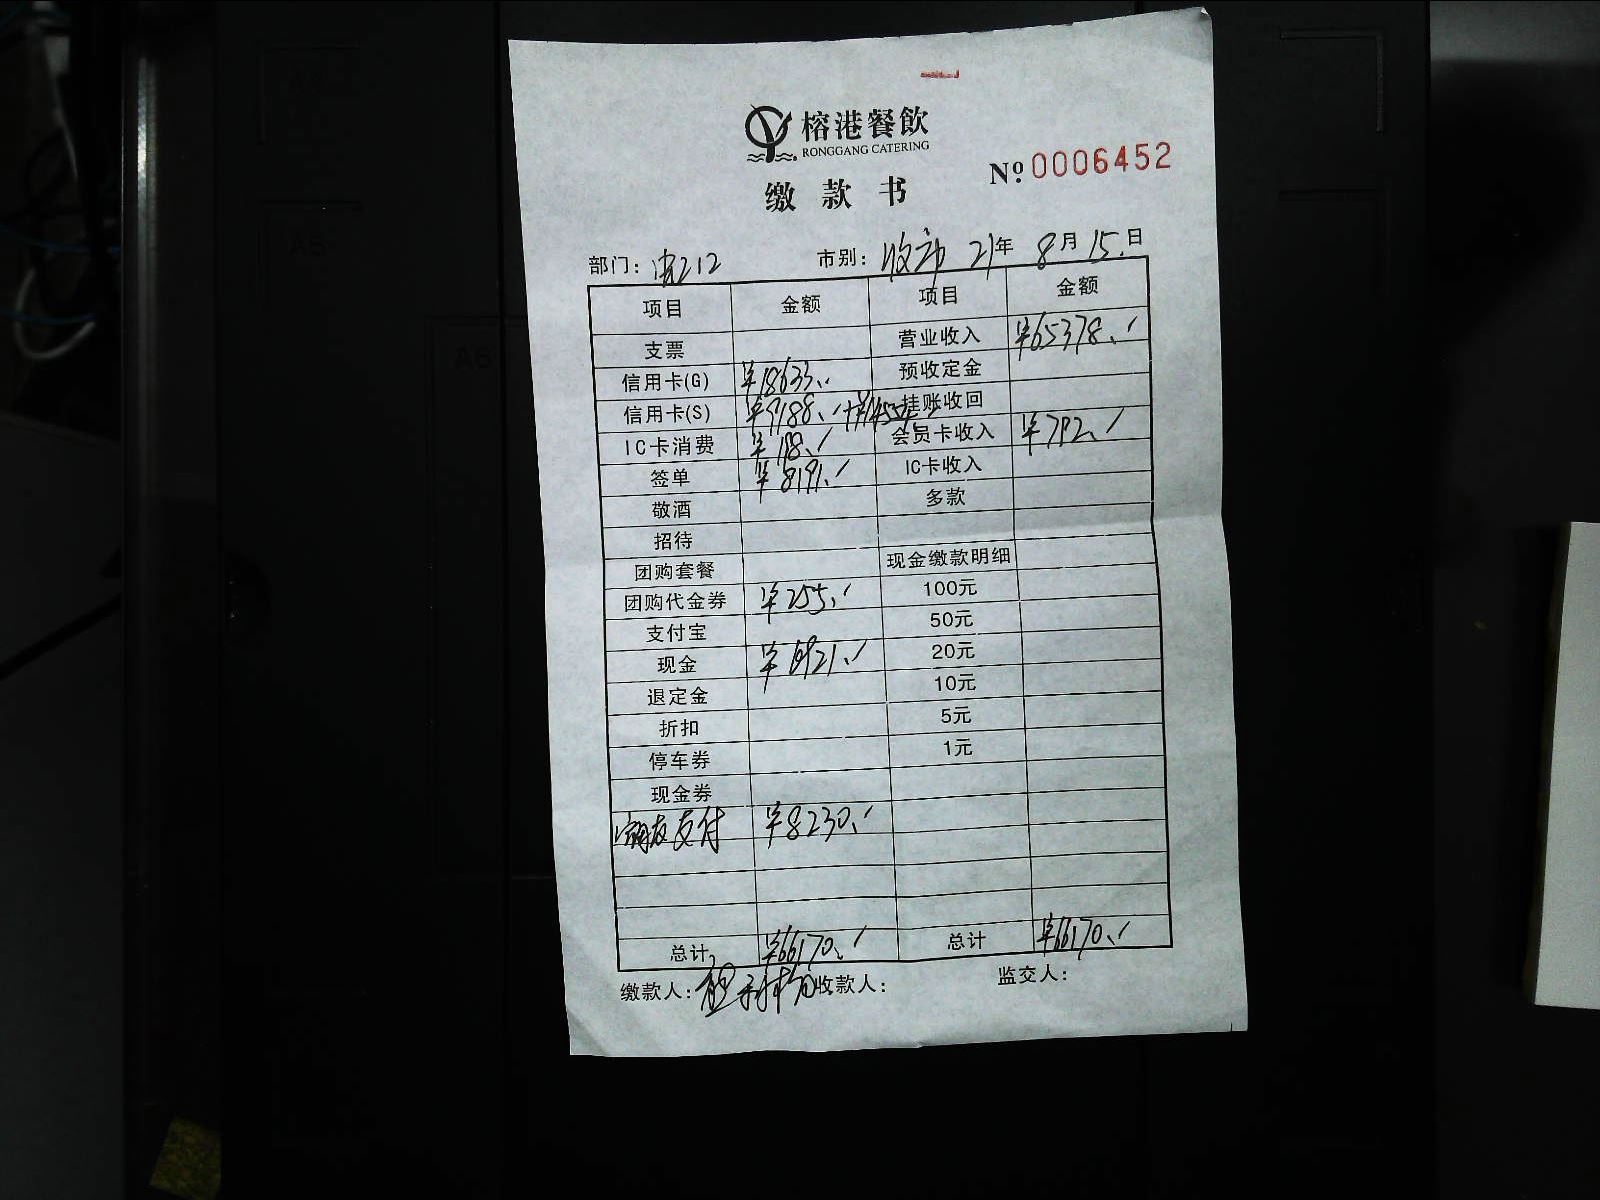 榕港餐飲
RONGGANG CATERING
№ 0006452
缴款书
部门： 市别：收市 21年 8月 15日
项目 金额 项目 金额
支票 营业收入 ¥65378.
信用卡(G) ¥18633. 预收定金
信用卡(S) ¥9188. 挂账收回
IC卡消费 会员卡收入 ¥792.
签单 ¥8191. IC卡收入
敬酒 多款
招待
团购套餐 现金缴款明细
团购代金券 ¥255. 100元
支付宝 50元
现金 20元
退定金 10元
折扣 5元
停车券 1元
现金券
支付 ¥8230.
总计 ¥66170. 总计 ¥66170.
缴款人： 收款人： 监交人：